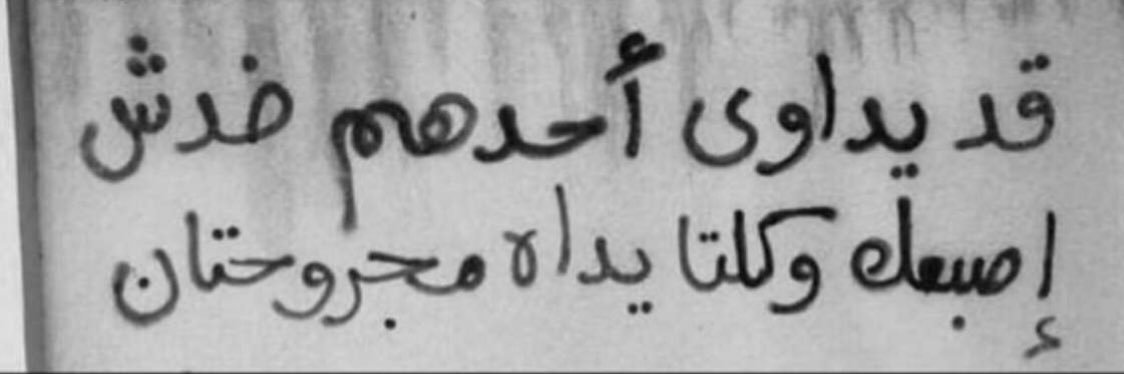 قد يداوى أحدهم خدش
إصبعك وكلتا يداه مجروحتان